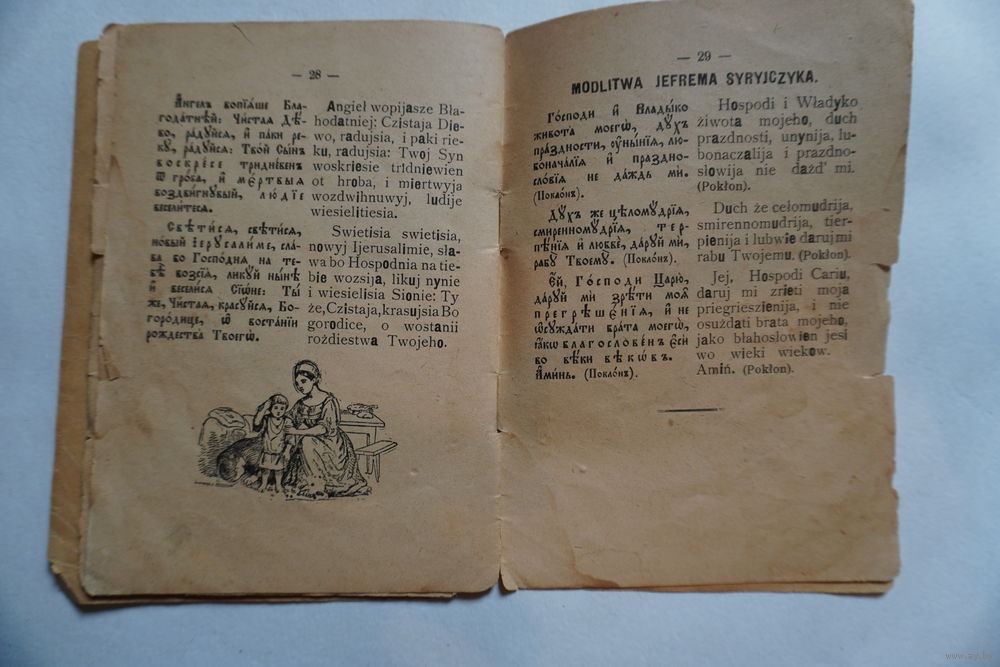 — 28 —
А҆́нгелъ вопїѧ́ше Бла-
года́тнѣй: Чи́стаѧ Дѣ́-
во, ра́дꙋйсѧ, и҆ па́ки ре-
кꙋ̀, ра́дꙋйсѧ: Тво́й Сы́нъ
воскре́се тридне́венъ
ѿ гро́ба, и҆ ме́ртвыѧ
воздви́гнꙋвый, лю́дїе
весели́тесѧ.
Свѣти́сѧ, свѣти́сѧ,
но́вый і҆ерꙋсали́ме, сла́-
ва бо Госпо́днѧ на те-
бѣ̀ возсїѧ̀, ликꙋ́й ны́нѣ
и҆ весели́сѧ Сїѡ́не: Ты́
же, Чи́стаѧ, красꙋ́йсѧ, Бо-
горо́дице, ѡ҆ воста́нїи
рождества̀ Твоегѡ̀.
Angieł wopijasze Bła-
hodatniej: Czistaja Die-
wo, radujsia, i paki rie-
ku, radujsia: Twoj Syn
woskriesie tridniewien
ot hroba, i miertwyja
wozdwihnuwyj, ludije
wiesielitiesia.
Swietisia swietisia,
nowyj Ijerusalimie, sła-
wa bo Hospodnia na tie-
bie wozsija, likuj nynie
i wiesielisia Sionie: Ty
że, Czistaja, krasujsia Bo
gorodice, o wostanii
rożdiestwa Twojeho.
— 29 —
MODLITWA JEFREMA SYRYJCZYKA.
Го́споди и҆ Влады́ко
живота̀ моегѡ̀, дꙋ́хъ
пра́здности, ᲂу҆ны́нїѧ, лю-
бонача́лїѧ и҆ праздно-
сло́вїѧ не да́ждь мѝ.
(Покло́нъ).
Дꙋ́хъ же цѣломꙋ́дрїѧ,
смиренномꙋ́дрїѧ, тер-
пѣ́нїѧ и҆ любвѐ, да́рꙋй мѝ,
рабꙋ̀ Твоемꙋ̀. (Покло́нъ).
Е҆́й, Го́споди Царю̀,
да́рꙋй мѝ зрѣ́ти моѧ̑
прегрѣше́нїѧ, и҆ не
ѡ҆сꙋжда́ти бра́та моегѡ̀,
ꙗ҆́кѡ благослове́нъ є҆сѝ
во вѣ́ки вѣкѡ́въ.
А҆ми́нь. (Покло́нъ).
Hospodi i Władyko
żiwota mojeho, duch
prazdnosti, unynija, lu-
bonaczalija i prazdno-
słowija nie dażd' mi.
(Pokłon).
Duch że celomudrija,
smirennomudrija, tier-
pienija i lubwie daruj mi
rabu Twojemu. (Pokłon).
Jej, Hospodi Cariu,
daruj mi zrieti moja
priegrieszienija, i nie
osużdati brata mojeho,
jako błahosłowien jesi
wo wieki wiekow.
Amiń. (Pokłon).